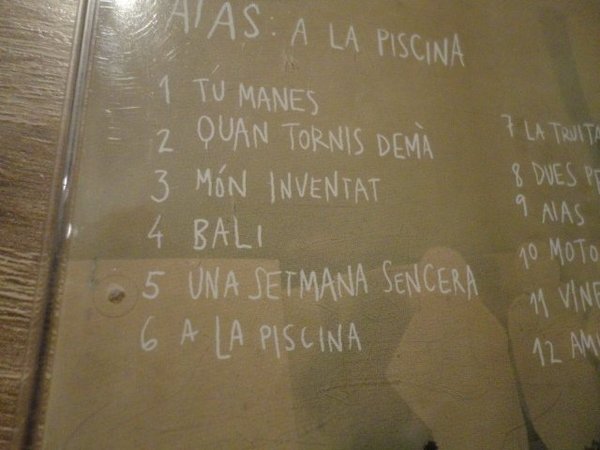 AIAS: A LA PISCINA
1 TU MANES
2 QUAN TORNIS DEMÀ
3 MÓN INVENTAT
4 BALI
5 UNA SETMANA SENCERA
6 A LA PISCINA
7 LA TRUITA
8 DUES
9 AIAS
10
11
12